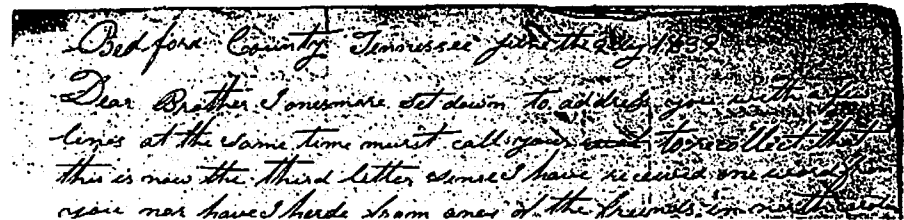 Bedford County Tennessee june the 1832
Dear Brother I onesmore set down to address you with a few
lines at the same time must call your to recollect that
this is now the third letter sense I have received one word from
you nor have I herde from aney of the friends in north